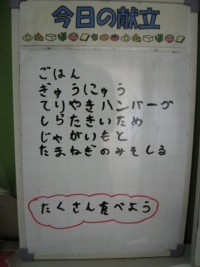 今日の献立
ごはん
ぎゅうにゅう
てりやきハンバーグ
しらたきいため
じゃがいもと
たまねぎのみそしる
たくさん食べよう